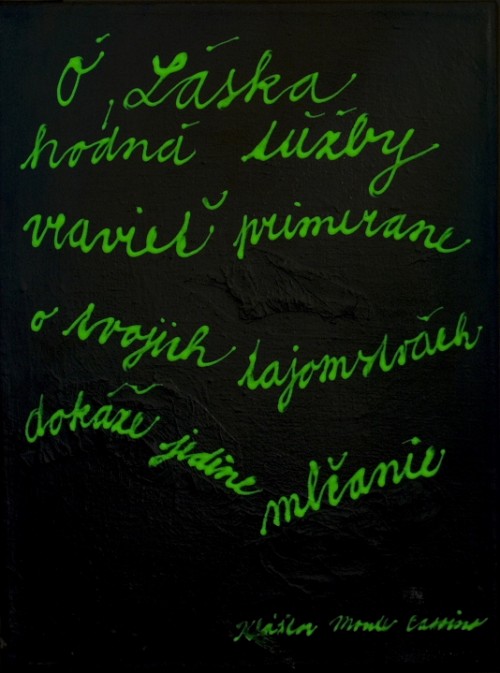 Ó, Láska
hodná túžby
vravieť primerane
o tvojich tajomstvách
dokáže jedine mlčanie
Kláštor Monte Cassino